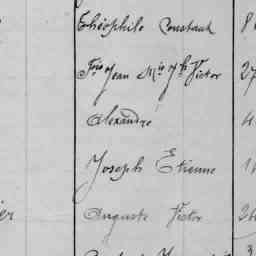 Théophile Constant 8
Fois Jean Mie Jh Victor 27
Alexandre 4
Joseph Etienne 1
ier Auguste Victor 24
3